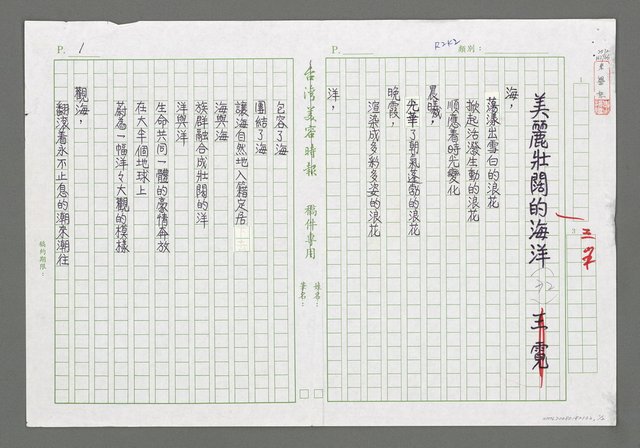 P.
類別：
R2K2
美麗壯闊的海洋
王霓
海，
蕩漾出雪白的浪花
掀起活潑生動的浪花
順應着時光變化
晨曦，
光華了朝氣蓬勃的浪花
晚霞，
渲染成多彩多姿的浪花
洋，
台灣美容時報 稿件專用
姓名：
筆名：
P. 1
包容了海
團結了海
讓海自然地入籍定居
海與海
族群融合成壯闊的洋
洋與洋
生命共同一體的豪情奔放
在大半個地球上
蔚為一幅洋々大觀的模樣
觀海，
翻滾着永不止息的潮來潮往
稿約期限：